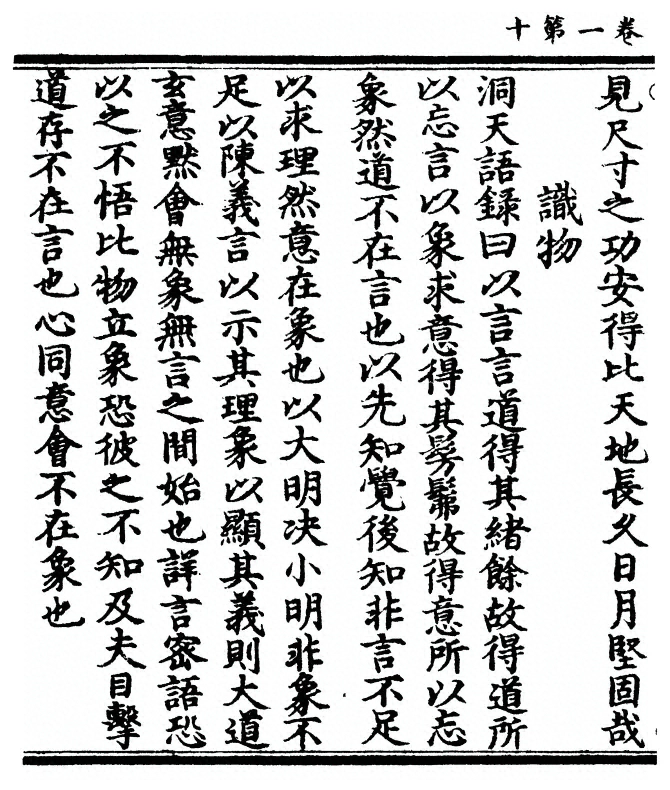 卷一第十
見尺寸之功安得比天地長久日月堅固哉
識物
洞天語録曰以言言道得其緒餘故得道所
以忘言以象求意得其髣髴故得意所以忘
象然道不在言也以先知覺後知非言不足
以求理然意在象也以大明决小明非象不
足以陳義言以示其理象以顯其義則大道
玄意黙會無象無言之間始也詳言密語恐
以之不悟比物立象恐彼之不知及夫目擊
道存不在言也心同意會不在象也